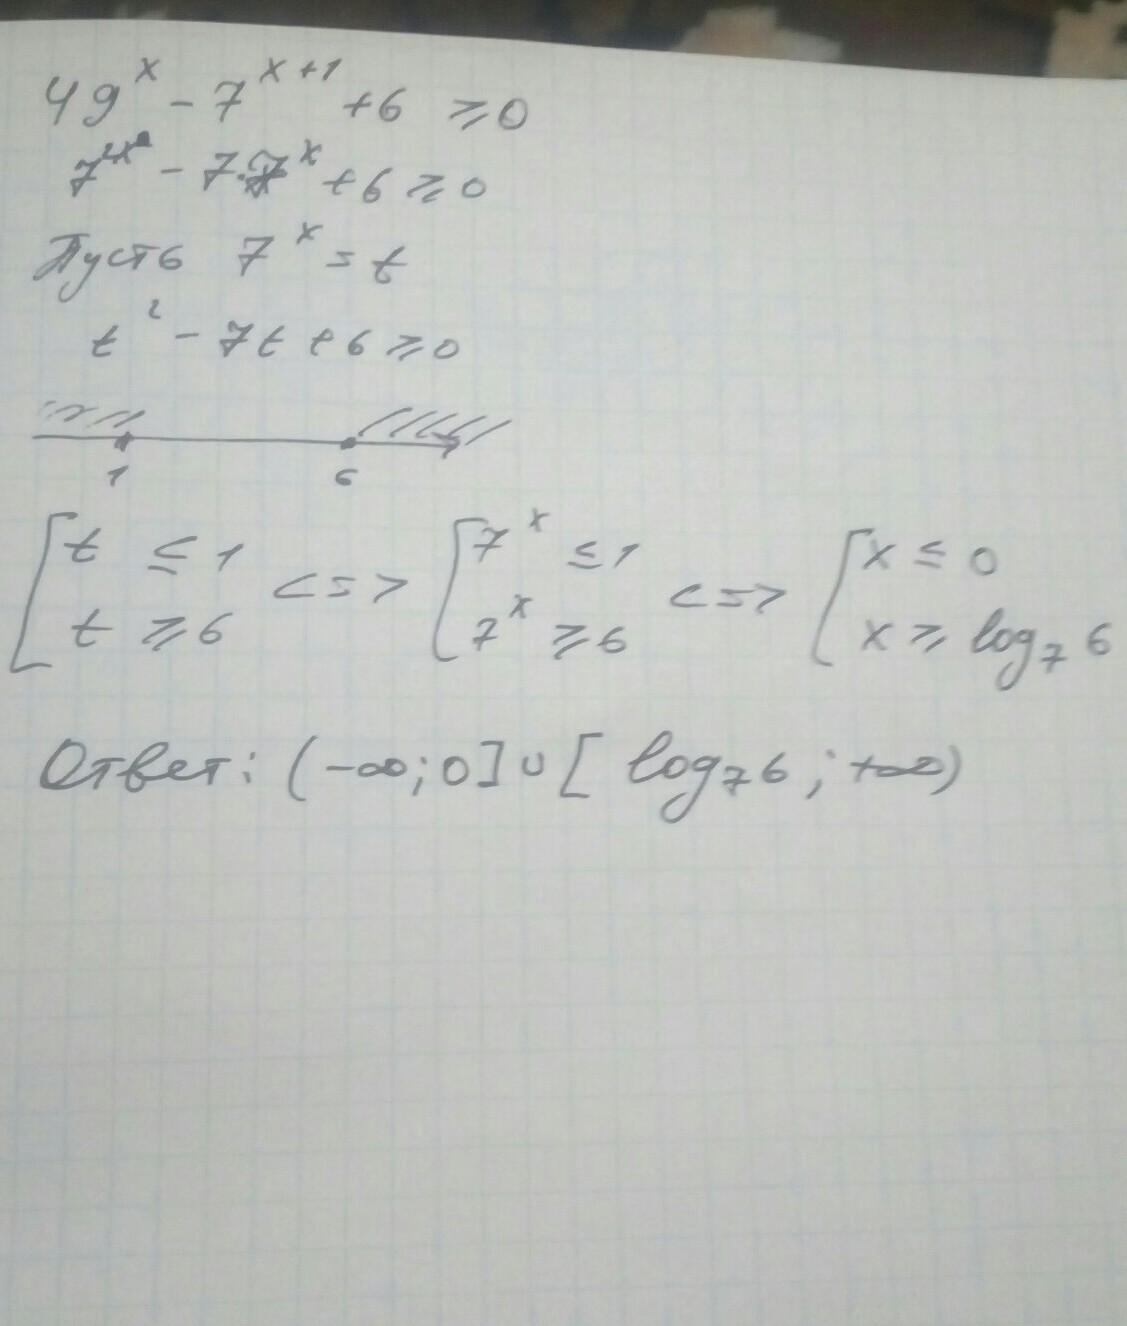 49^x - 7^{x+1} + 6 ≥ 0
7^{2x} - 7·7^x + 6 ≥ 0
Пусть 7^x = t
t^2 - 7t + 6 ≥ 0
1 6
[ t ≤ 1 <=> [ 7^x ≤ 1 <=> [ x ≤ 0
t ≥ 6 7^x ≥ 6 x ≥ log_7 6
Ответ: (-∞; 0] ∪ [ log_7 6 ; +∞)